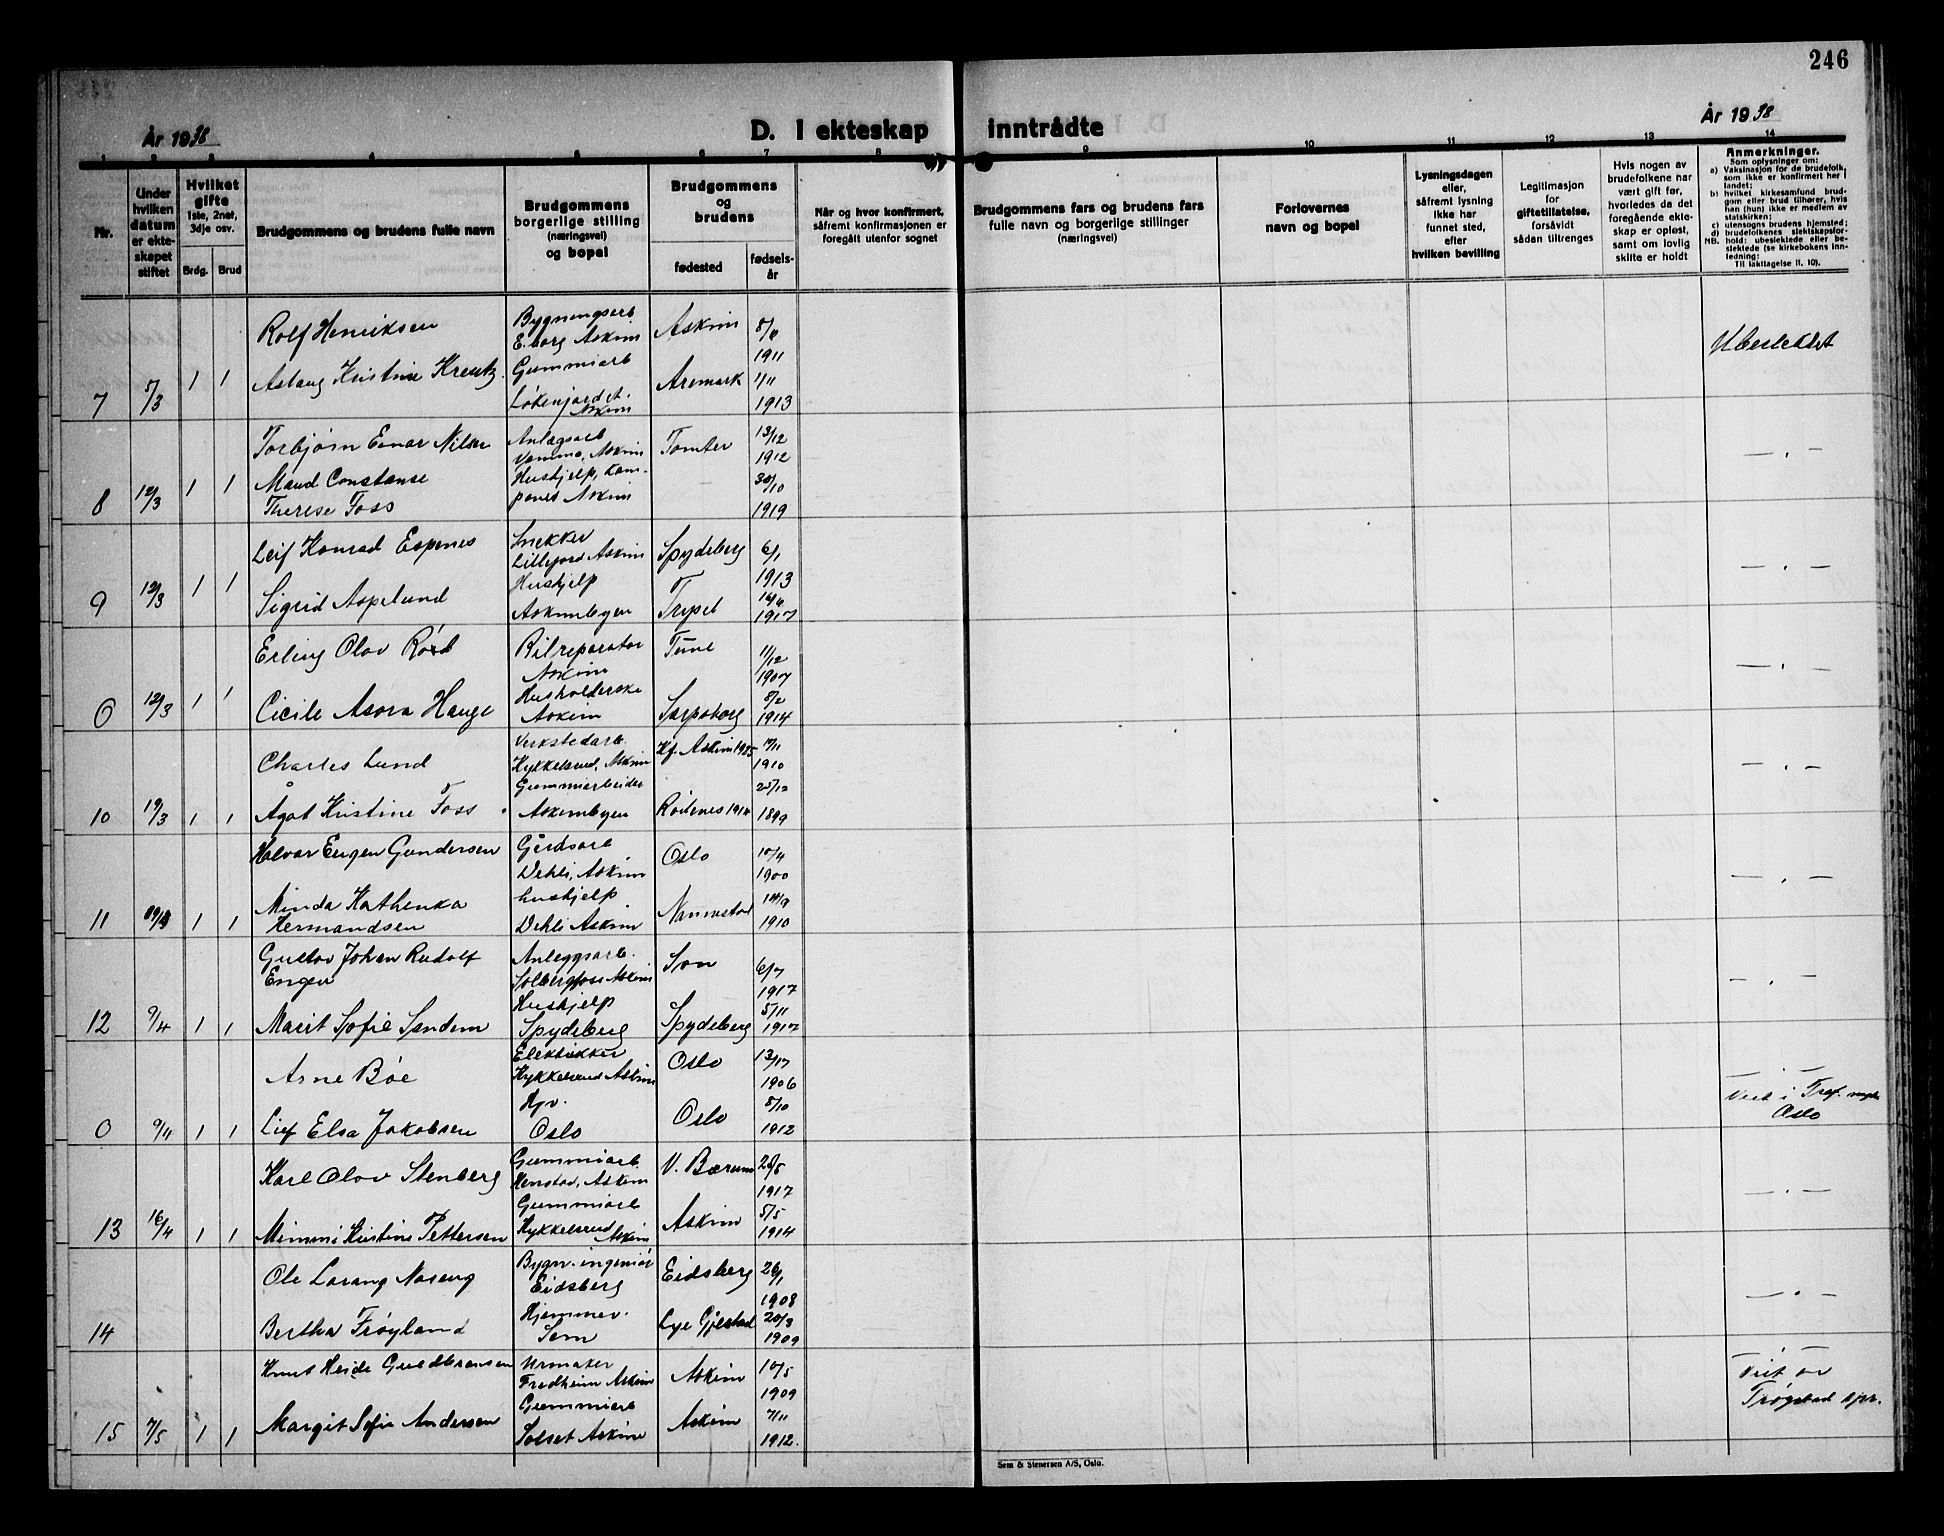 246
År 1938
D. I ekteskap inntrådte
År 1938
1 2 3 4 5 6 7 8 9 10 11 12 13 14
Nr.
Under hvilken datum er ekteskapet stiftet
Hvilket gifte 1ste, 2net, 3dje osv.
Brdg. Brud
Brudgommens og brudens fulle navn
Brudgommens borgerlige stilling (næringsvei) og bopel
Brudgommens og brudens
fødested
fødselsår
Når og hvor konfirmert, såfremt konfirmasjonen er foregått utenfor sognet
Brudgommens fars og brudens fars fulle navn og borgerlige stillinger (næringsvei)
Forlovernes navn og bopel
Lysningsdagen eller, såfremt lysning ikke har funnet sted, efter hvilken bevilling
Legitimasjon for giftetillatelse, forsåvidt sådan tiltrenges
Hvis nogen av brudefolkene har vært gift før, hvorledes da det foregående ekteskap er opløst, samt om lovlig skifte er holdt
Anmerkninger.
Som oplysninger om:
a) Vaksinasjon for de brudefolk, som ikke er konfirmert her i landet;
b) hvilket kirkesamfund brudgom eller brud tilhører, hvis han (hun) ikke er medlem av statskirken;
c) utensogns brudens hjemsted;
d) brudefolkenes slektskapsforhold: ubeslektede eller beslektede (se kirkebokens innledning:
NB.
Til iakttagelse II. 10).
Rolf Henriksen Bygningsarb Askim 8/8
E.borg Askim 1911 Ubeslektet
7 5/3 1 1 Aslaug Kristine Kreutz Gummiarb Aremark 1/11
Askim 1913
Torbjørn Einar Nilsen Anlegsarb Tomter 13/12
Vamma, Askim 1912 — " —
8 12/3 1 1 Maud Constanse Hushjelp, Kom- 30/10
Therese Foss penes Askim 1919
Leif Konrad Espenes Snekker Spydeberg 6/1
Lillefjord Askim 1913 — " —
9 12/3 1 1 Sigrid Aspelund Hushjelp Trysil 14/6
Askimbyen 1917
Erling Olav Rød Bilreparatør Tune 11/12
Askim 1907 — " —
0 12/3 1 1 Cicile Asora Hauge Husholderske Sarpsborg 8/2
Askim 1914
Charles Lund Verkstedarb. Kf. Askim 1925 17/11
Kykkelsrud, Askim 1910 — " —
10 19/3 1 1 Ågot Kristine Foss Gummiarbeider Rødenes 1914 25/12
Askimbyen 1899
Halvar Eugen Gundersen Gårdsarb Oslo 10/4
Dehli, Askim 1900 — " —
11 1 1 Minda Kathenka hushjelp Nannestad 14/9
Hermandsen Dehli Askim 1910
Gustav Johan Rudolf Anleggsarb. Son 6/7
Enger Solbergfoss Askim 1917 — " —
12 9/4 1 1 Marit Sofie Sandem Hushjelp Spydeberg 5/11
Spydeberg 1917
Arne Bøe Elektriker Oslo 13/17
Kykkelsrud Askim 1906 — " —
Viet i Oslo
0 9/4 1 1 Lief Elsa Jakobsen Hjv. Oslo 8/10
Oslo 1912
Karl Olav Stenberg Gummiarb. V. Bærum 28/5
Henstad, Askim 1917 — " —
13 16/4 1 1 Mimmi Kristine Pettersen Gummiarb Askim 5/5
Kykkelsrud Askim 1914
Ole Lorang Naseng Bygn. ingeniør Eidsberg 26/1
Eidsberg 1908 — " —
14 Bertha Frøyland Hjemmev. Lye Gjestad 20/3
Som 1909
Knut Heide Guldbransen Urmaker Askim 10/5
Fredheim Askim 1909 — " —
Viet av
Trøgstad spr.
15 7/5 1 1 Margit Sofie Andersen Gummiarb Askim 7/11
Solset Askim 1912.
Sem & Stenersen A/S, Oslo.